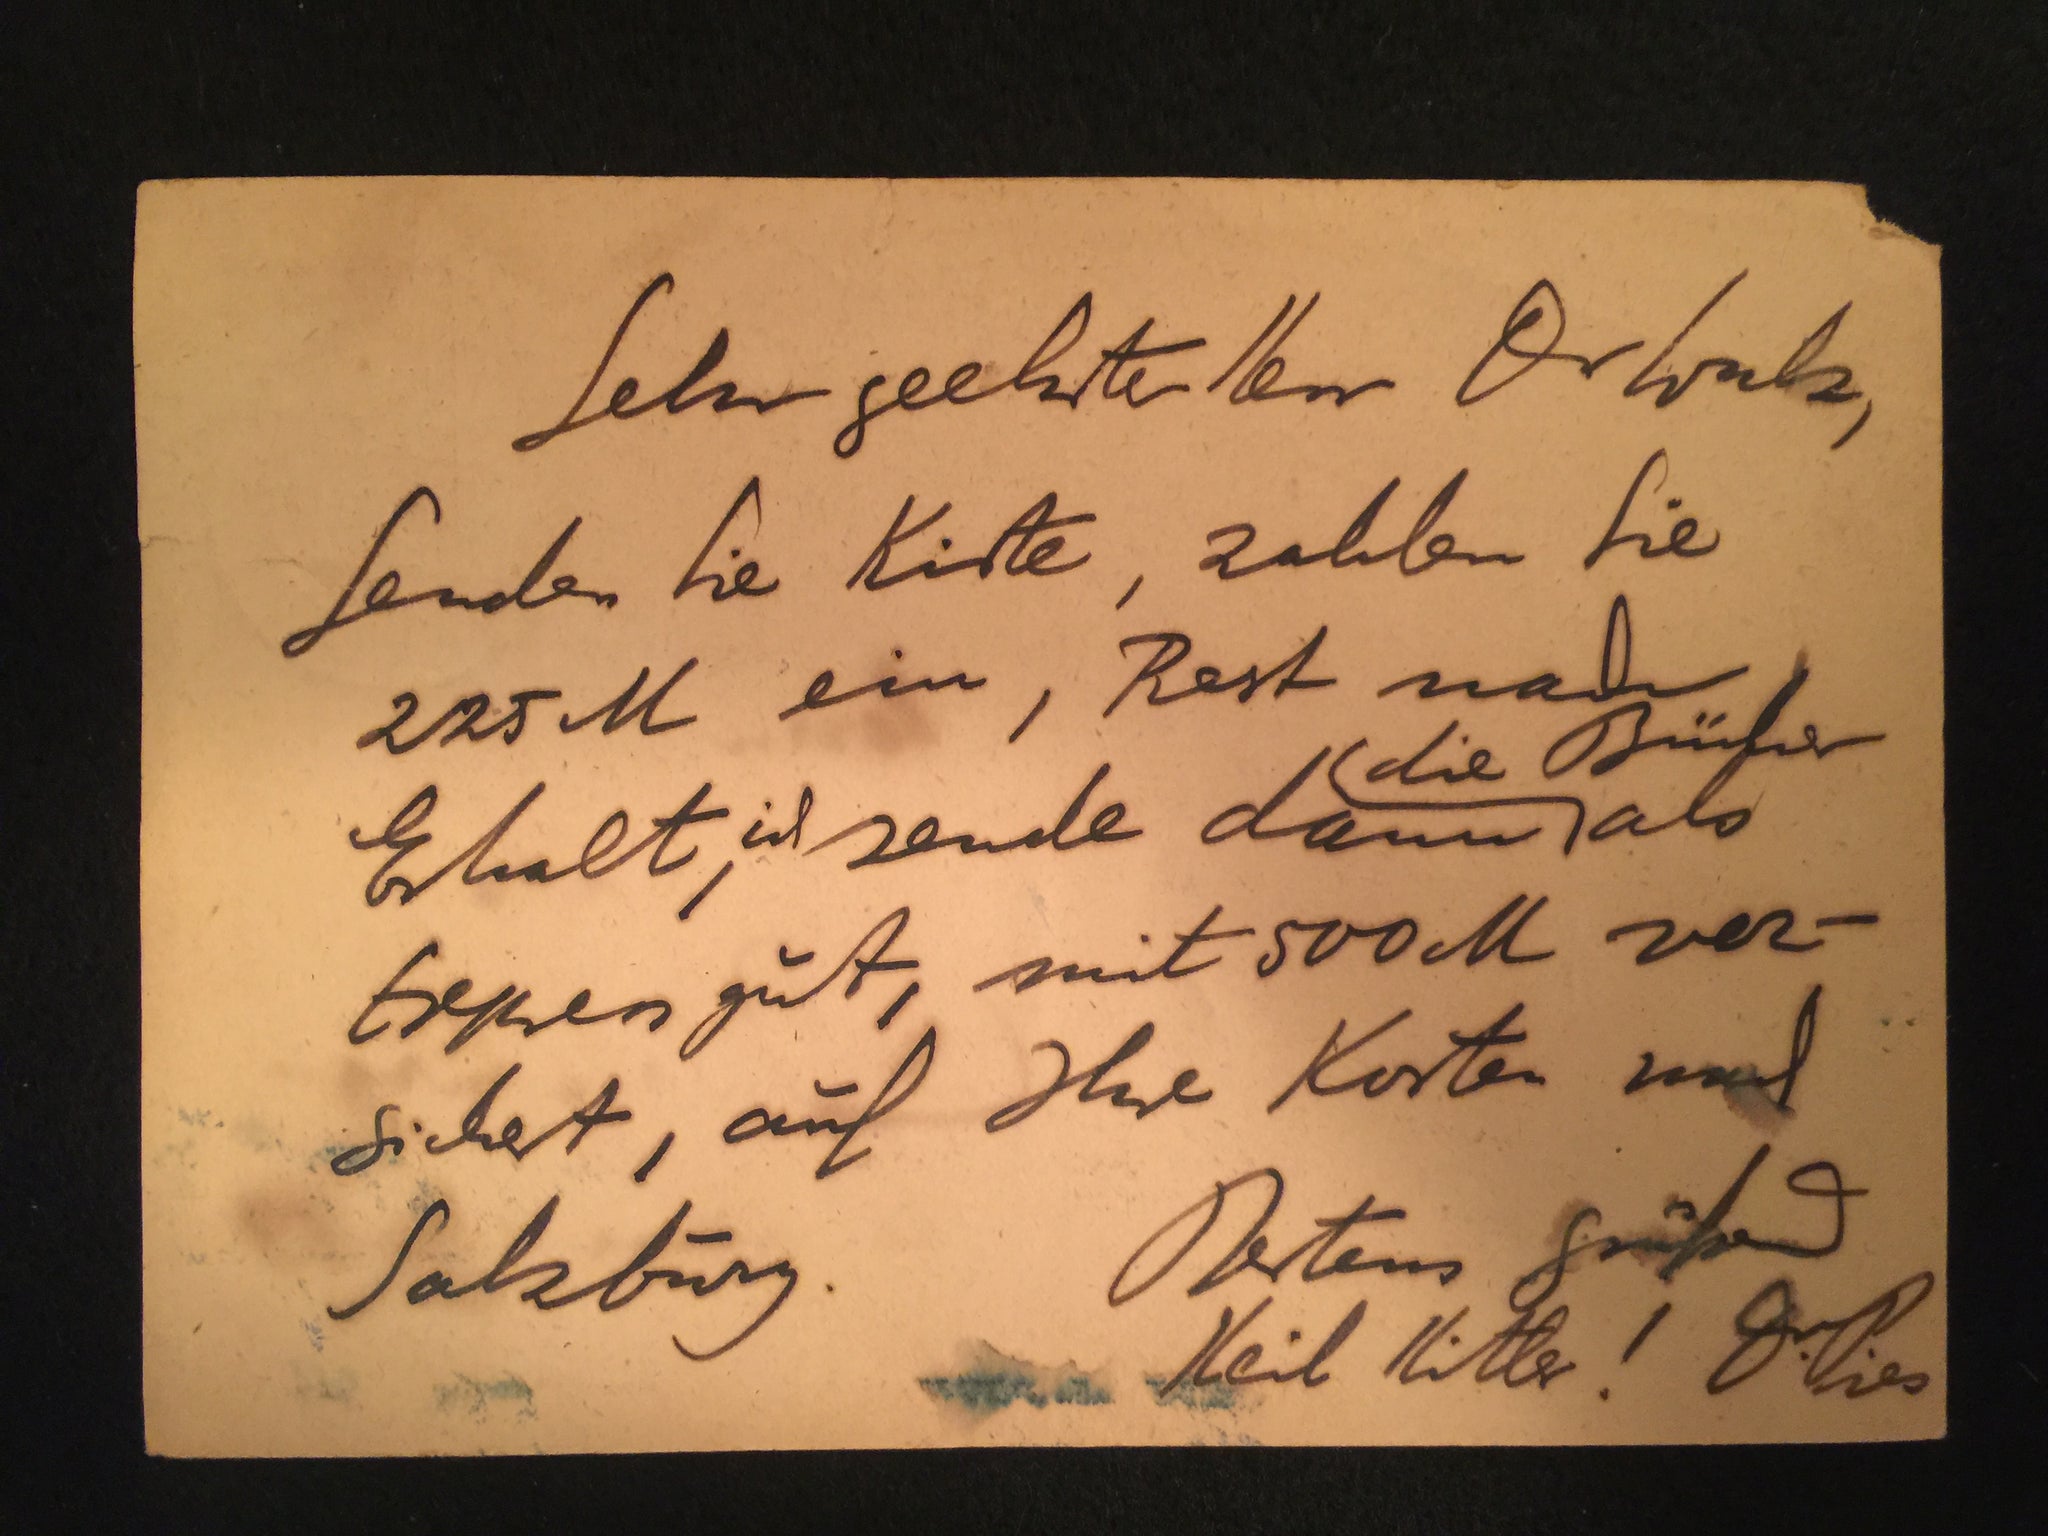 Sehr geehrter Herr Dr
Senden Sie Kiste, zahlen Sie
225 M ein, Rest nach
die Bücher
Erhalt, ich sende dann als
gut, mit 500 M ver-
sichert, auf Ihre Kosten nach
Salzburg. Bestens grüßend
Heil Hitler! Dr.